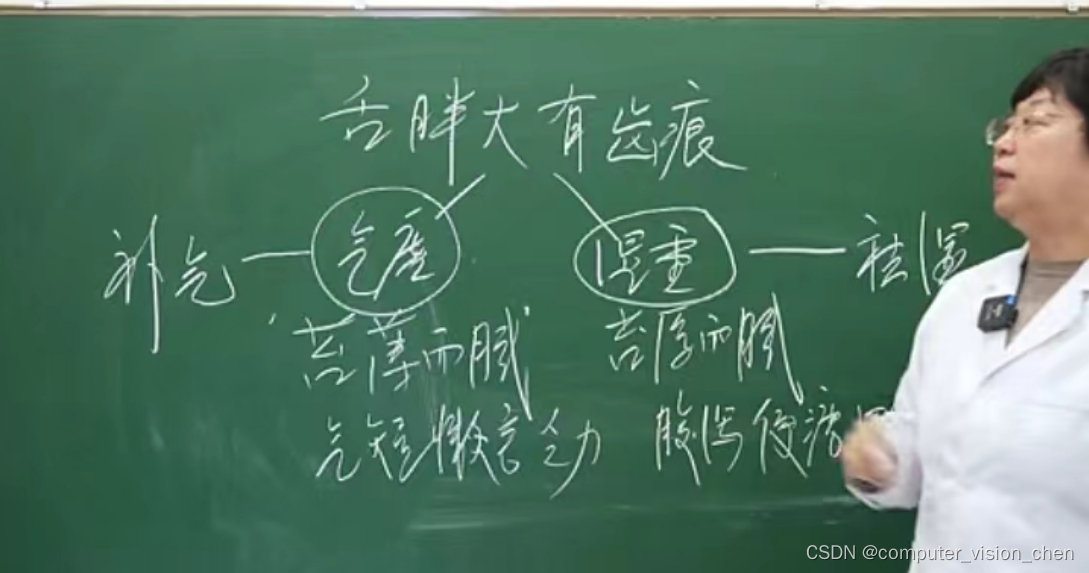 舌胖大有齿痕
补气 气虚 湿重 祛湿
苔薄而腻 苔厚而腻
气短懒言乏力 腹泻便溏
CSDN @computer_vision_chen